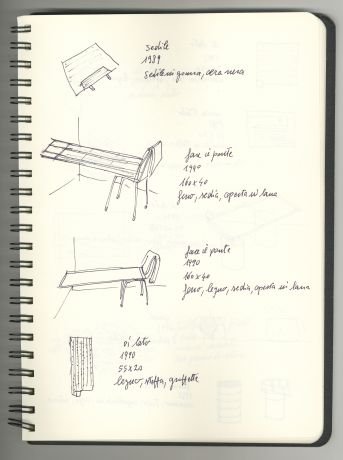 sedile
1989
sedile in gomma, cera nera
fare è ponte
1990
160x40
ferro, sedia, coperta in lana
fare è ponte
1990
160x40
ferro, legno, sedia, coperta in lana
di lato
1990
55x20
legno, stoffa, graffette